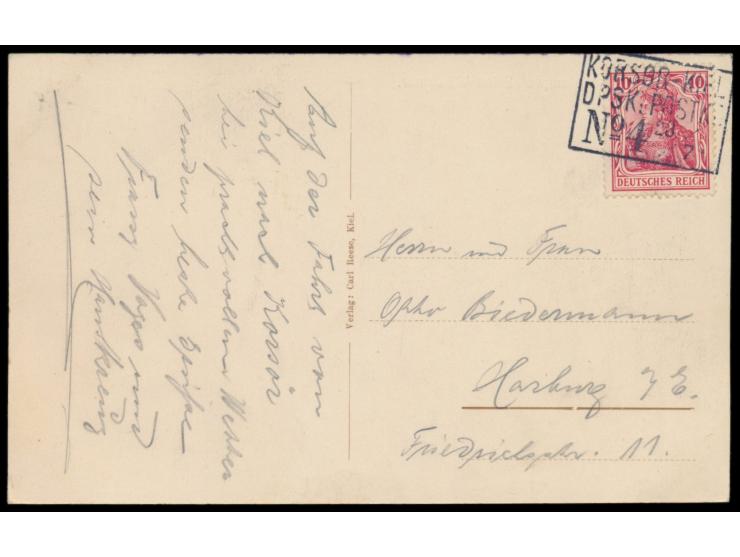 Auf der Fahrt von
Kiel nach Korsör
bei prachtvollem Wetter
senden beste Grüsse
Franz und
sein
Verlag: Carl Reese, Kiel.
KORSOR-KIEL
DPSK: POSTK
No 4
10 10
DEUTSCHES REICH
Herrn und Frau
Otto Biedermann
Harburg a/E.
Friedrichstr. 11.